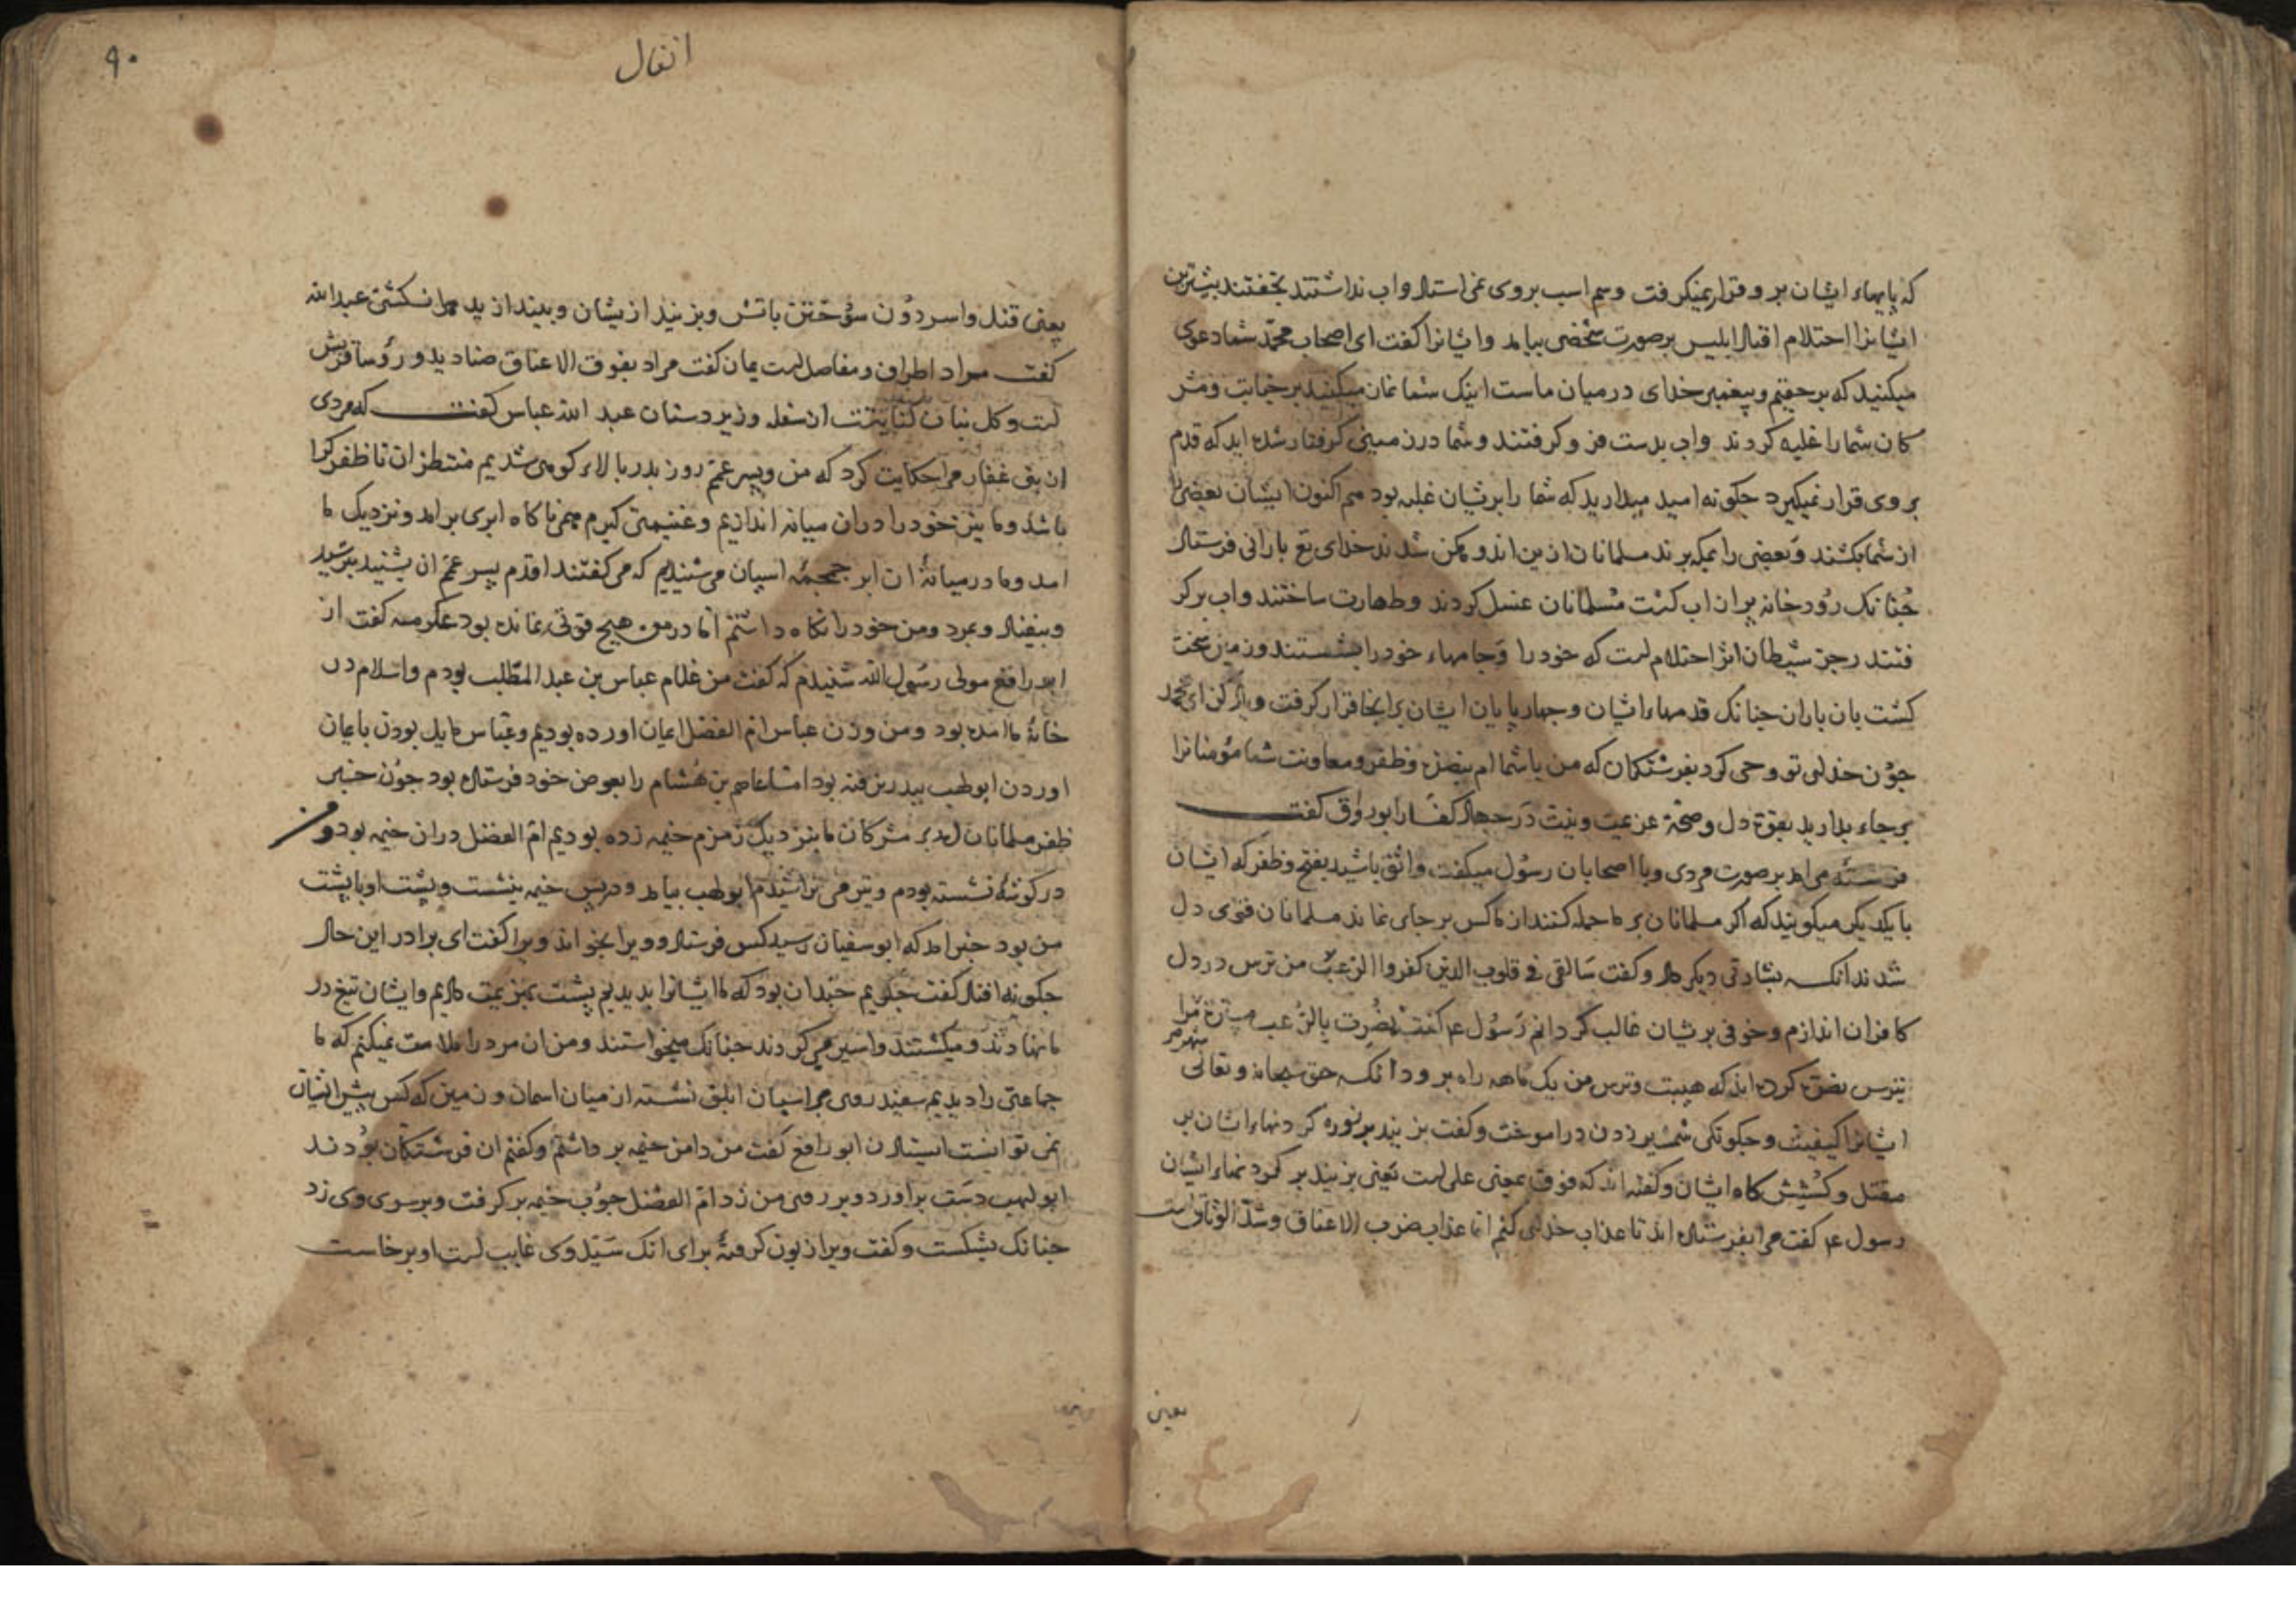 که پایهاء ایشان برو قرار نمیکرفت وسم اسب بروی نمی استاد واب نداشتند بخفتند بیشترین
ایشانرا احتلام افتاد ابلیس بر صورت شخصی بیامد وایشانرا کفت ای اصحاب محمد شما دعوی
میکنید که بر حقیم وپیغمبر خدای در میان ماست اینک شما نمان میکنید بر خیابت ومشر
کان شما را غلبه کردند واب بدست فرو کرفتند وشما درزمینی کرفتار شده اید که قدم
بروی قرار نمیکیرد جکونه امید میدارید که شما را برشان غلبه بود هم اکنون ایشان بعضی را
از شما بکشند وبعضی را بمکه برند مسلمانان ازین اندوهکن شدند خدای تع بارانی فرستاد
جنانک رودخانه پر از اب کشت مسلمانان غسل کردند وطهارت ساختند واب بر کر
فتند رجز شیطان اثر احتلام است که خود را وجامهاء خود را بشستند وزمین سخت
کشت بان باران جنانک قدمهاء ایشان وجهارپایان ایشان برانجا قرار کرفت ویاد کن ای محمد
جون خدای تو وحی کرد بفرشتکان که من باشما ام بنصرة وظفر ومعاونت شما مؤمنانرا
برجاء بدارید بقوة دل وصحة عزیمت ونیت در جهاد کفار ابوروق کفت
فرشته می امد بر صورت مردی وبا اصحابان رسول میکفت واثق باشید بفتح وظفر که ایشان
با یکدیکر میکویند که اکر مسلمانان بر ما حمله کنند از ما کس بر جای نماند مسلمانان قوی دل
شدند انکه بشارتی دیکر داد وکفت سالقی فی قلوب الذین کفروا الرعب من ترس در دل
کافران اندازم وخوفی برشان غالب کردانم رسول ع کفت نصرت بالرعب مسیرة شهر مرا
بترس نصرة کرده اند که هیبت وترس من یک ماهه راه برود انکه حق سبحانه وتعالی
ایشانرا کیفیت وجکونکی شمشیر زدن دراموخت وکفت بزنید بر نوره کردنهاء ایشان بر
مقتل وکشش کاه ایشان وکفته اند که فوق بمعنی علی است یعنی بزنید بر کردنهاء ایشان
رسول ع کفت مرا بفرستاده اند تا عذاب خدای کنم اما عذاب ضرب الاعناق وشد الوثاق است
یعنی
۹۰
انفال
یعنی قتل واسر دون سوختن باتش وبزنید ازیشان وبیندازید هر انکشتی عبد الله
کفت مراد اطراف ومفاصل است یمان کفت مراد بفوق الاعناق صنادید ورؤسا قریش
است وکل بنان کنایتست از سفله وزیردستان عبد الله عباس کفت که مردی
از بنی غفار مرا حکایت کرد که من وپسر عمم روز بدر بالاء کوهی شدیم منتظر ان تا ظفر کرا
باشد وما نیز خود را دران میانه اندازیم وغنیمتی کیریم همی ناکاه ابری برامد ونزدیک ما
امد وما درمیانهٔ ان ابر حمحمهٔ اسپان می شنیدیم که می کفتند اقدم پسر عمم ان بشنید بترسید
وبیفتاد وبمرد ومن خود را نکاه داشتم اما در من هیج قوتی نمانده بود عکرمه کفت از
ابو رافع مولی رسول الله شنیدم که کفت من غلام عباس بن عبد المطلب بودم واسلام در
خانهٔ ما امده بود ومن وزن عباس ام الفضل ایمان اورده بودیم وعباس مایل بودن بایمان
اوردن ابولهب ببدر نرفته بود اما عاصم بن هشام را بعوض خود فرستاده بود جون خبر
ظفر مسلمانان امد بر مشرکان ما بنزدیک زمزم خیمه زده بودیم ام الفضل دران خیمه بود ومن
در کوشهٔ نشسته بودم وتیر می تراشیدم ابولهب بیامد ودر پس خیمه بنشست وپشت او با پشت
من بود خبر امد که ابوسفیان رسید کس فرستاد وویرا بخواند ویرا کفت ای برادر این حال
جکونه افتاد کفت جکویم جندان بود که ما ایشانرا بدیدیم پشت بهزیمت دادیم وایشان تیغ در
ما نهادند ومیکشتند واسیر می کردند جنانک میخواستند ومن ان مرد را ملامت نمیکنم که ما
جماعتی را دیدیم سفید روی بر اسپان ابلق نشسته از میان اسمان وزمین که کس پیش ایشان
نمی توانست استادن ابو رافع کفت من دامن خیمه برداشتم وکفتم ان فرشتکان بودند
ابولهب دست براورد وبر روی من زد ام الفضل جوب خیمه برکرفت وبر سوی وی زد
جنانک بشکست وکفت ویرا زبون کرفتهٔ برای انک سید وی غایب است او برخاست